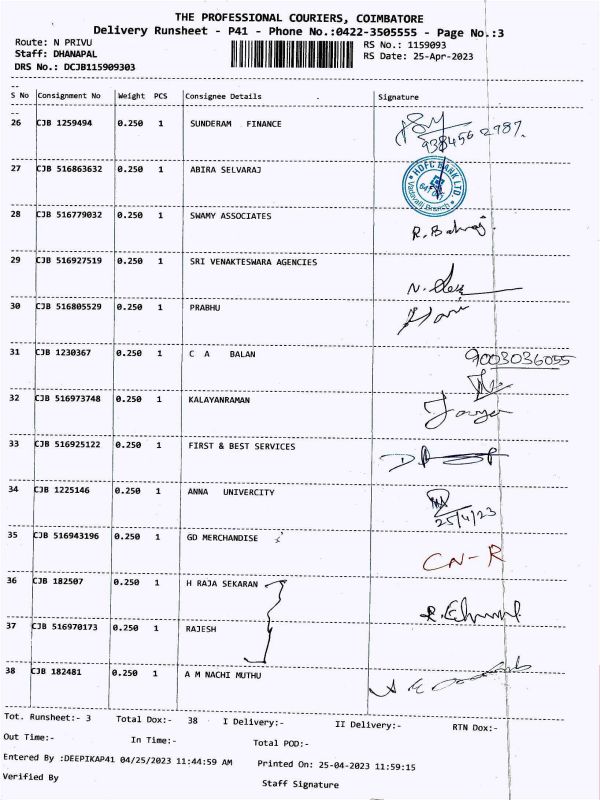 THE PROFESSIONAL COURIERS, COIMBATORE
Delivery Runsheet - P41 - Phone No.:0422-3505555 - Page No.:3
Route: N PRIVU RS No.: 1159093
Staff: DHANAPAL RS Date: 25-Apr-2023
DRS No.: DCJB115909303
S No Consignment No Weight PCS Consignee Details Signature
26 CJB 1259494 0.250 1 SUNDERAM FINANCE
9384562987.
27 CJB 516863632 0.250 1 ABIRA SELVARAJ
HDFC BANK LTD
Vadavalli Branch
28 CJB 516779032 0.250 1 SWAMY ASSOCIATES
29 CJB 516927519 0.250 1 SRI VENAKTESWARA AGENCIES
30 CJB 516805529 0.250 1 PRABHU
31 CJB 1230367 0.250 1 C A BALAN
9003036055
32 CJB 516973748 0.250 1 KALAYANRAMAN
33 CJB 516925122 0.250 1 FIRST & BEST SERVICES
34 CJB 1225146 0.250 1 ANNA UNIVERCITY
25/4/23
35 CJB 516943196 0.250 1 GD MERCHANDISE
CN-R
36 CJB 182507 0.250 1 H RAJA SEKARAN
37 CJB 516970173 0.250 1 RAJESH
38 CJB 182481 0.250 1 A M NACHI MUTHU
Tot. Runsheet:- 3 Total Dox:- 38 I Delivery:- II Delivery:- RTN Dox:-
Out Time:- In Time:- Total POD:-
Entered By :DEEPIKAP41 04/25/2023 11:44:59 AM Printed On: 25-04-2023 11:59:15
Verified By Staff Signature